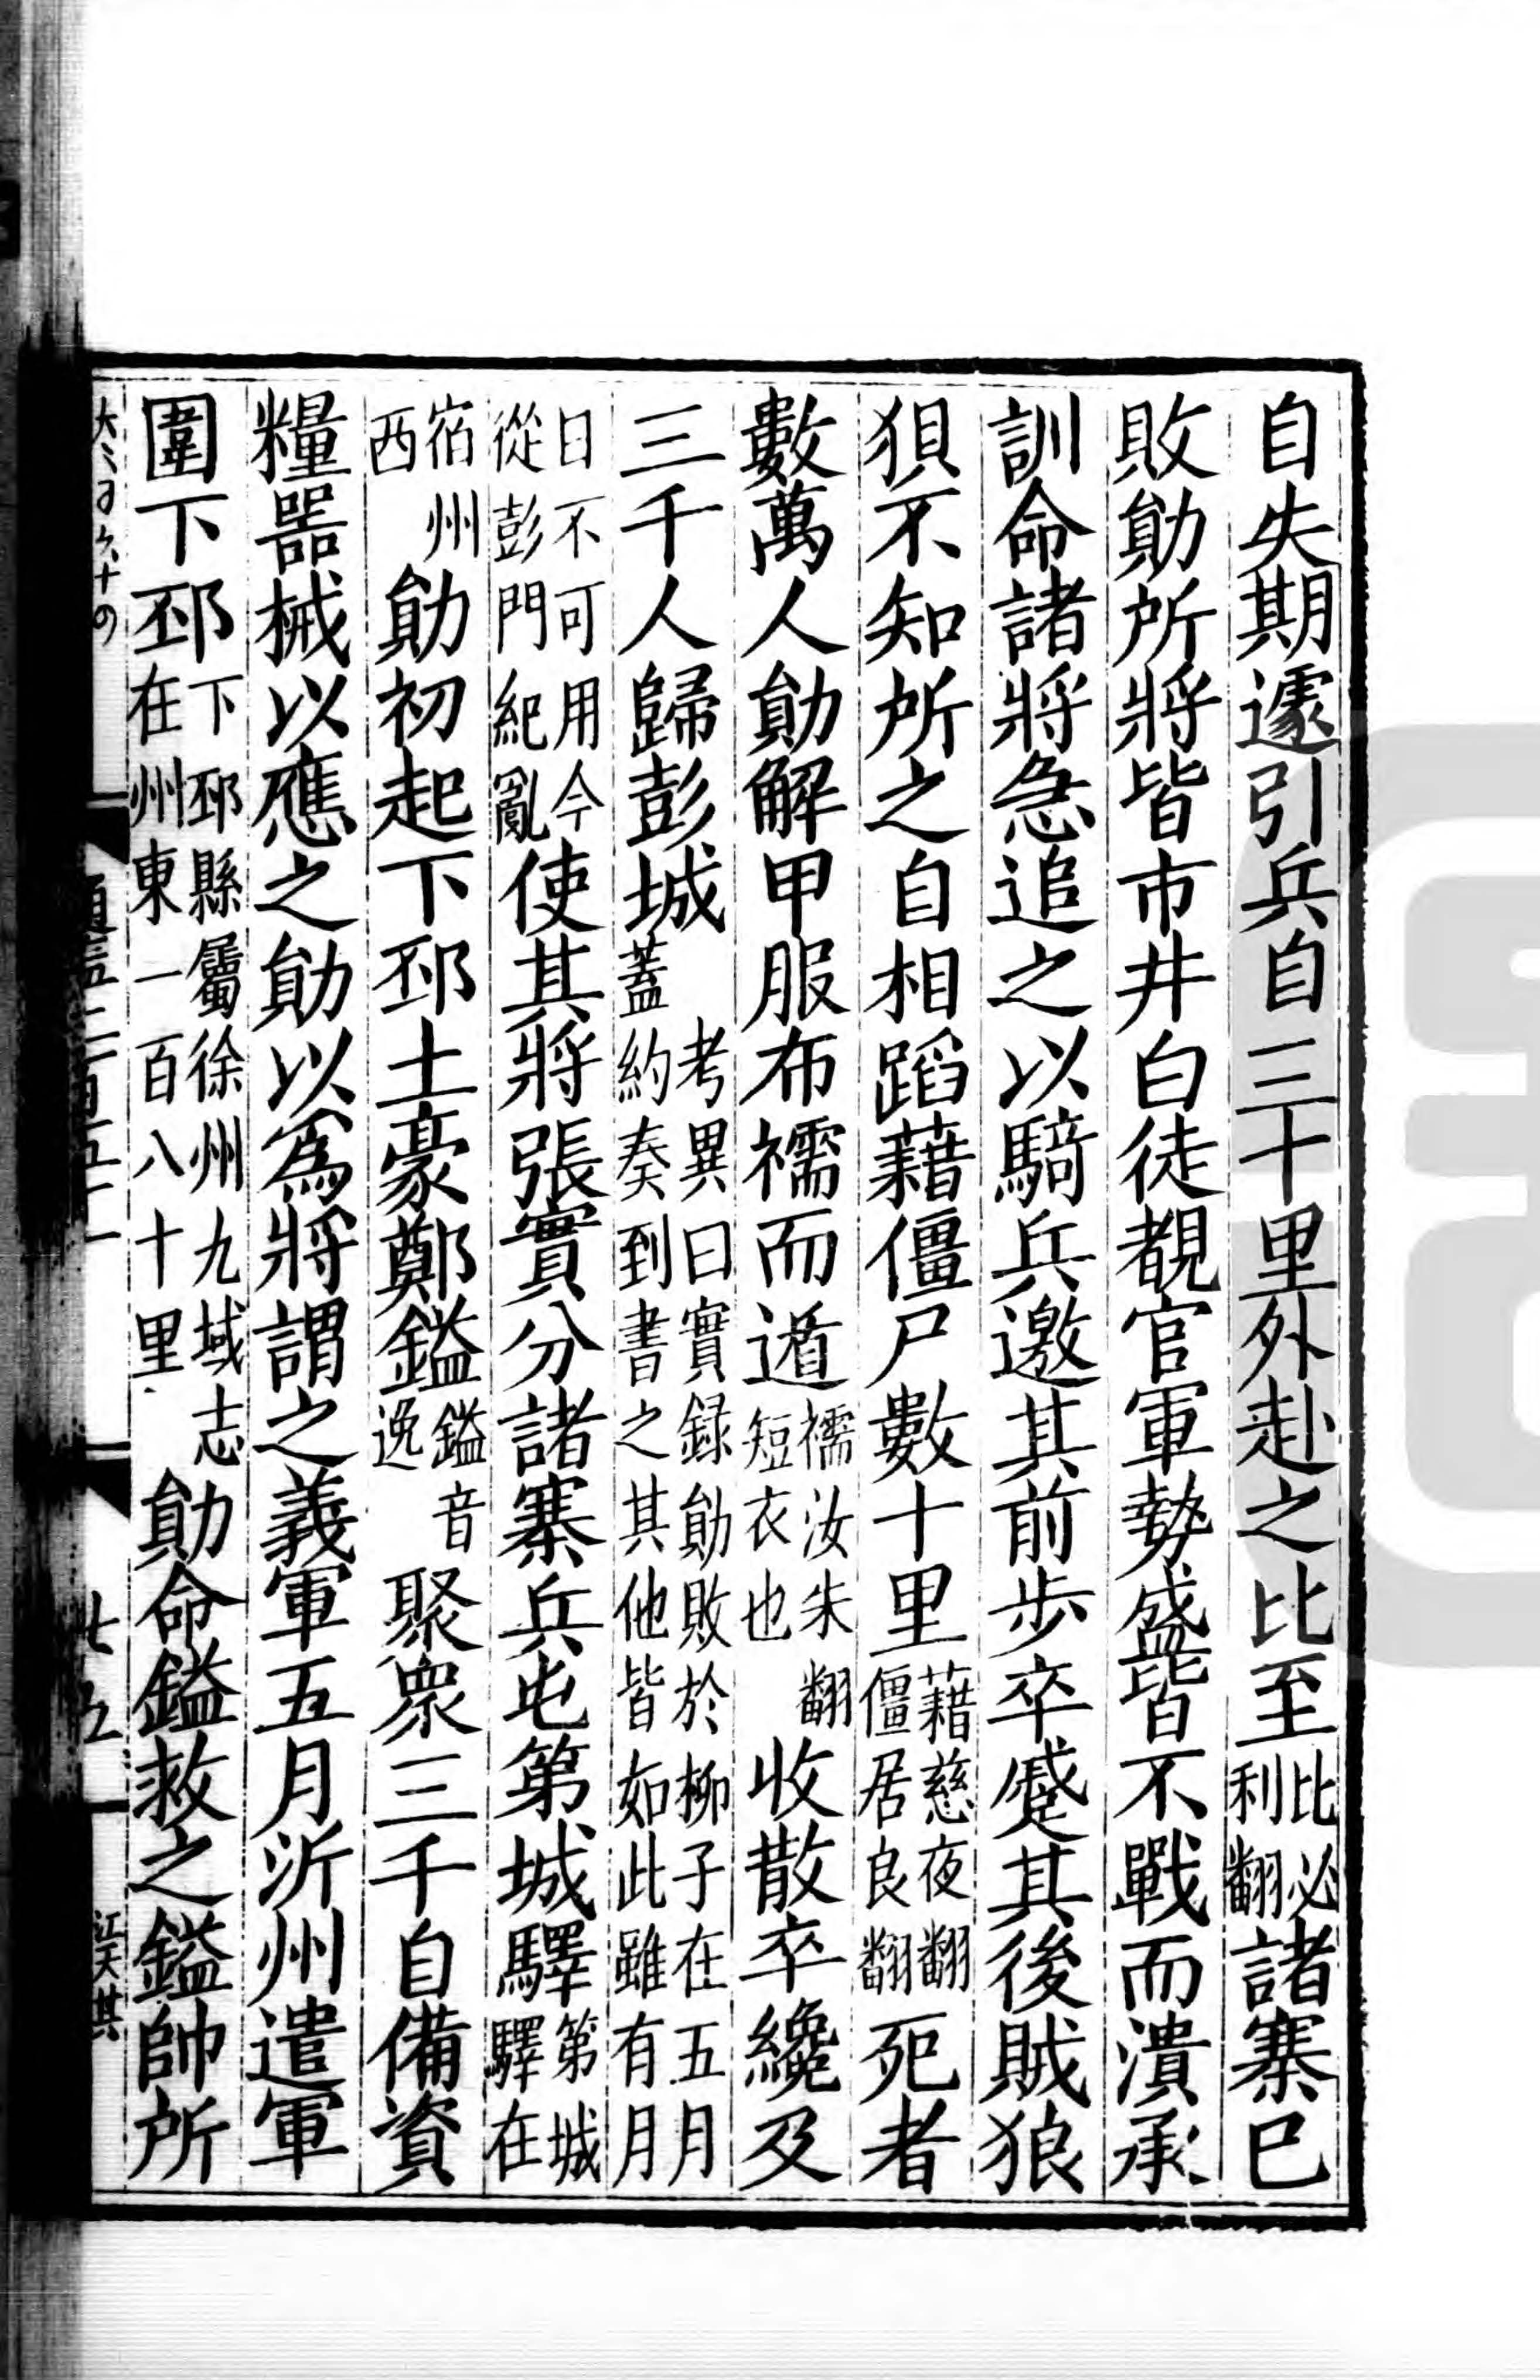 自失期遽引兵自三十里外赴之比至比必利翻諸寨已
敗勛所將皆市井白徒覩官軍勢盛皆不戰而潰承
訓命諸將急追之以騎兵邀其前步卒蹙其後賊狼
狽不知所之自相蹈藉僵尸數十里藉慈夜翻僵居良翻死者
數萬人勛解甲服布襦而遁襦汝朱翻短衣也收散卒纔及
三千人歸彭城考異曰實録勛敗於柳子在五月蓋約奏到書之其他皆如此雖有月
日不可用今從彭門紀亂使其將張實分諸寨兵屯第城驛第城驛在
宿州西勛初起下邳土豪鄭鎰鎰音逸聚衆三千自備資
糧器械以應之勛以爲將謂之義軍五月沂州遣軍
圍下邳下邳縣屬徐州九域志在州東一百八十里勛命鎰救之鎰帥所
七五
江天其